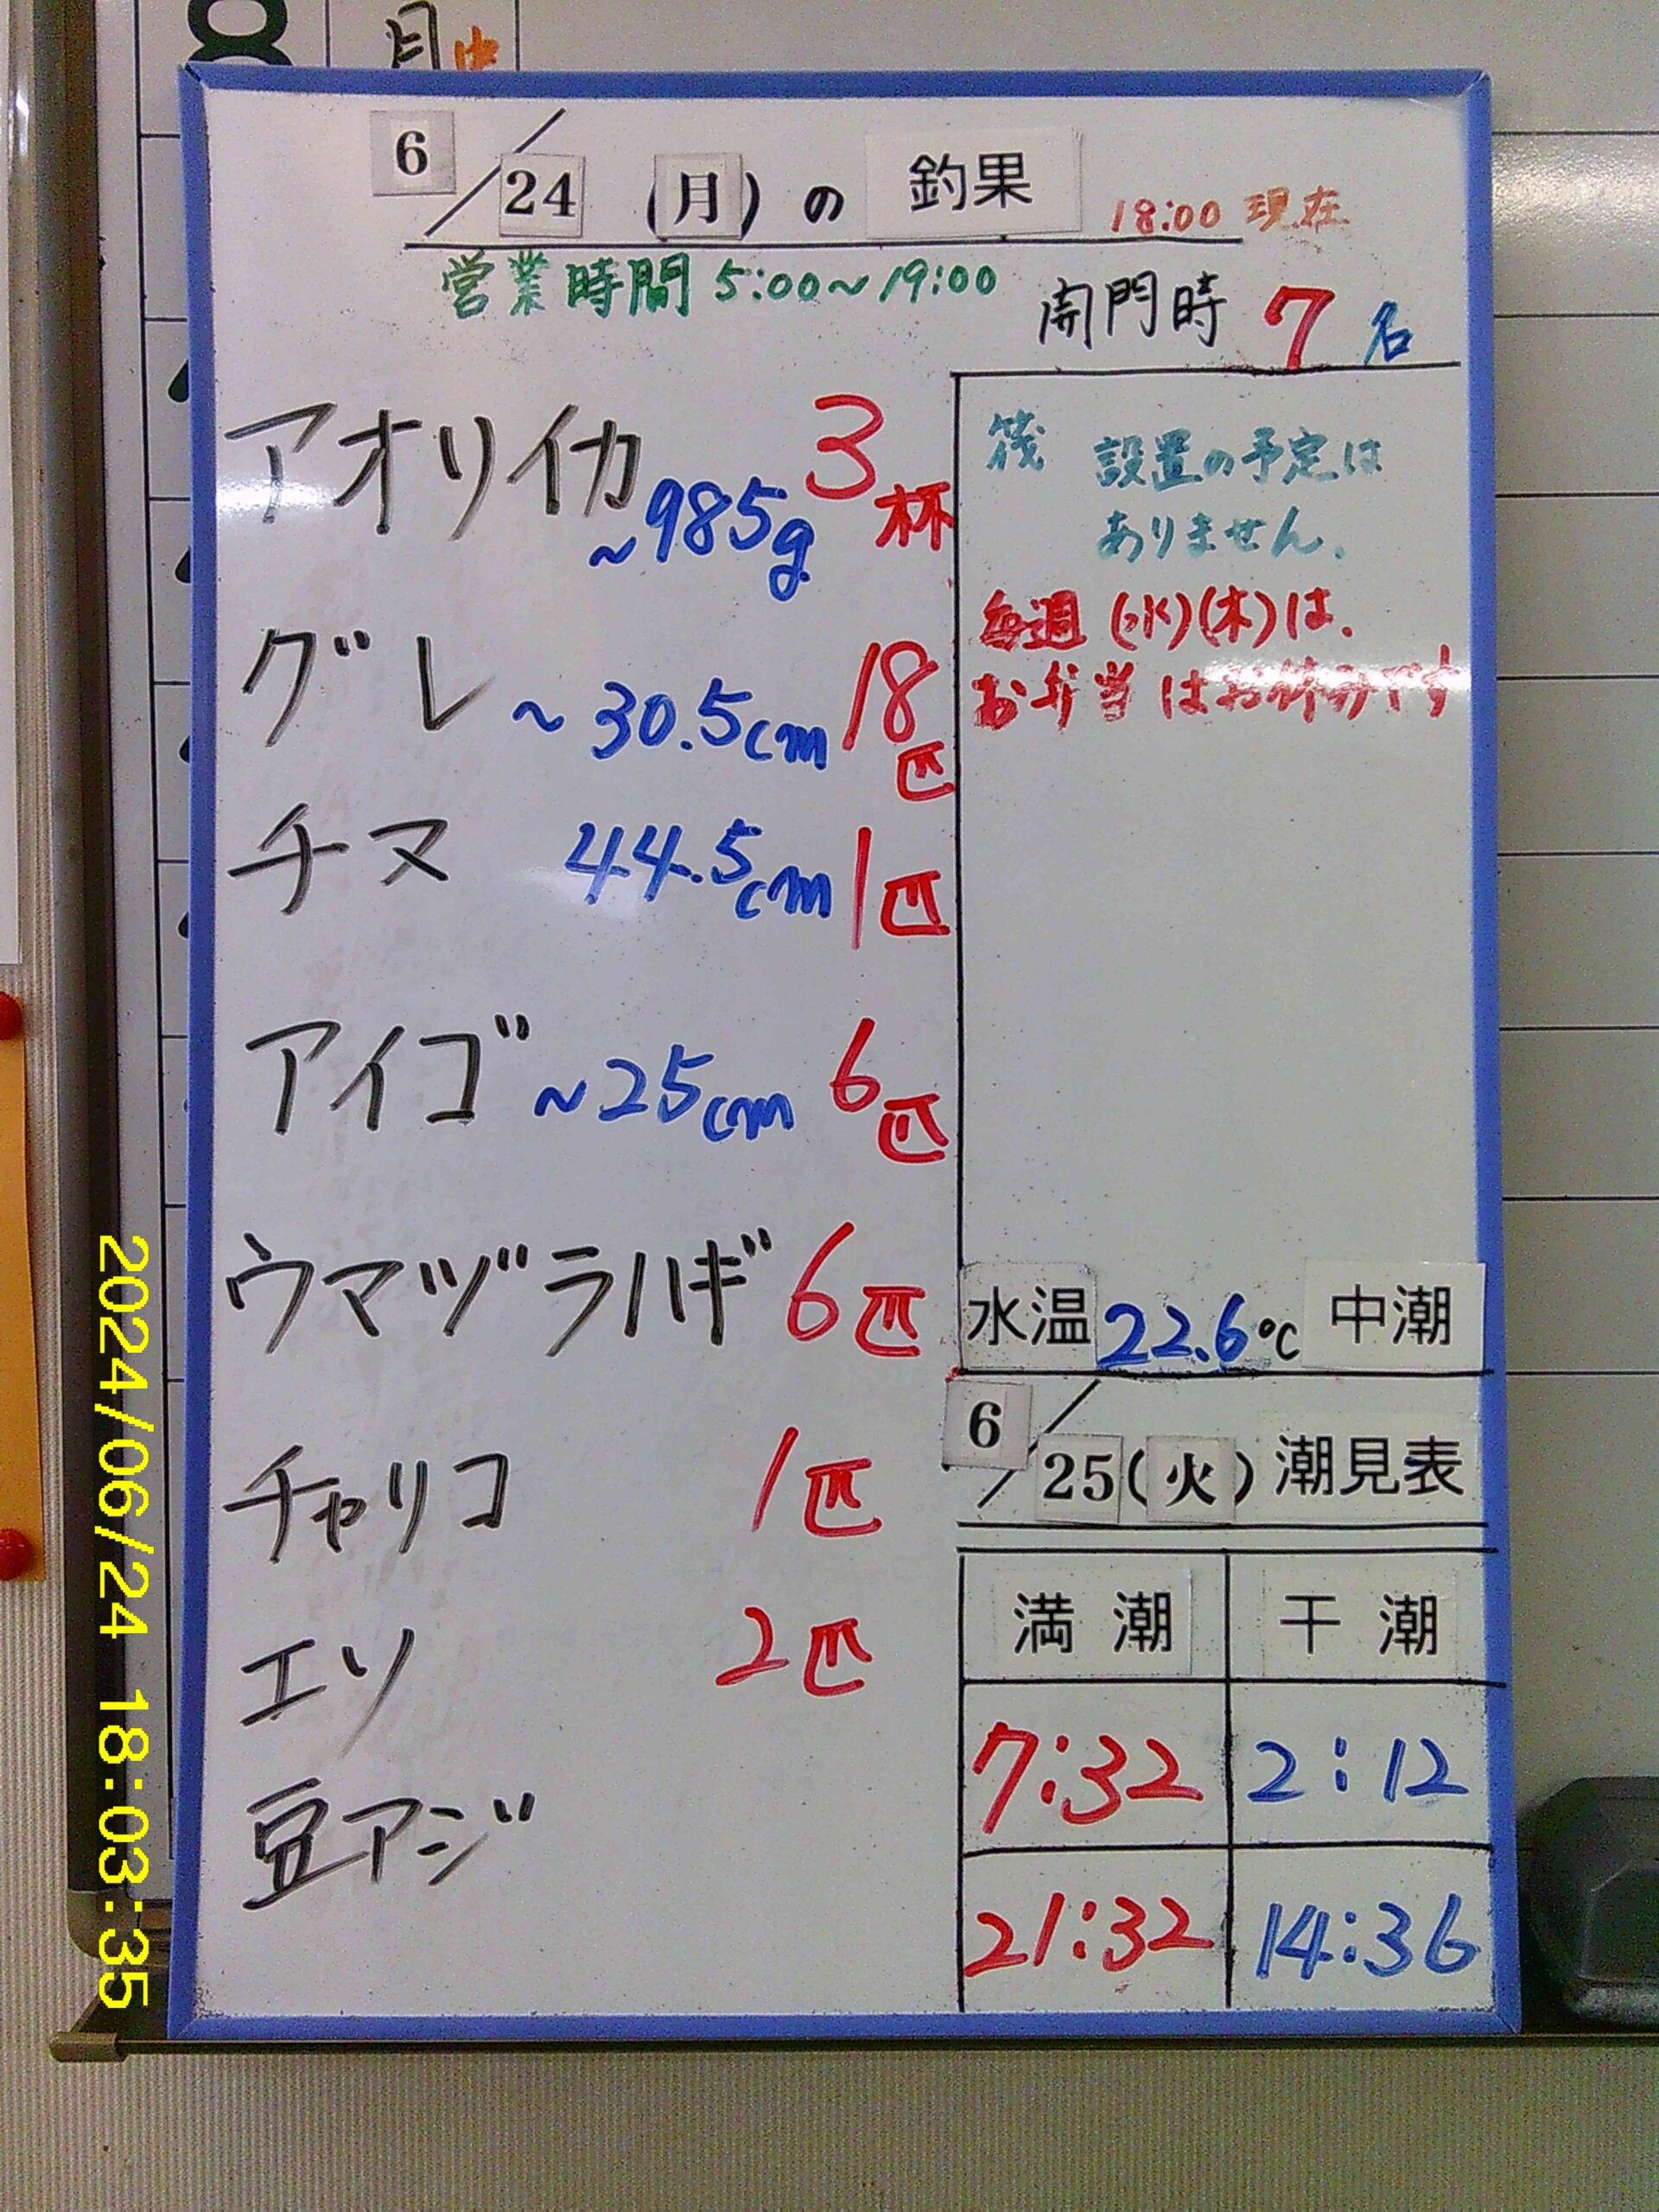 8 月 中
6/24 (月) の 釣果 18:00 現在
営業時間 5:00~19:00
開門時 7 名
アオリイカ ~985g 3杯
グレ ~30.5cm 18匹
チヌ 44.5cm 1匹
アイゴ ~25cm 6匹
ウマヅラハギ 6匹
チャリコ 1匹
エソ 2匹
豆アジ
筏 設置の予定は
ありません.
毎週 (水)(木)は.
お弁当はお休みです
水温 22.6℃ 中潮
6/25(火) 潮見表
満潮 干潮
7:32 2:12
21:32 14:36
2024/06/24 18:03:35